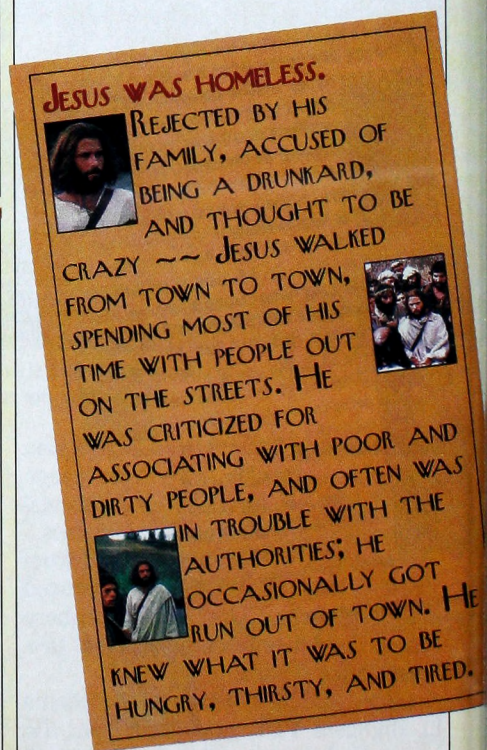 JESUS WAS HOMELESS.
REJECTED BY HIS
FAMILY, ACCUSED OF
BEING A DRUNKARD,
AND THOUGHT TO BE
CRAZY ~~ JESUS WALKED
FROM TOWN TO TOWN,
SPENDING MOST OF HIS
TIME WITH PEOPLE OUT
ON THE STREETS. HE
WAS CRITICIZED FOR
ASSOCIATING WITH POOR AND
DIRTY PEOPLE, AND OFTEN WAS
IN TROUBLE WITH THE
AUTHORITIES; HE
OCCASIONALLY GOT
RUN OUT OF TOWN. HE
KNEW WHAT IT WAS TO BE
HUNGRY, THIRSTY, AND TIRED.